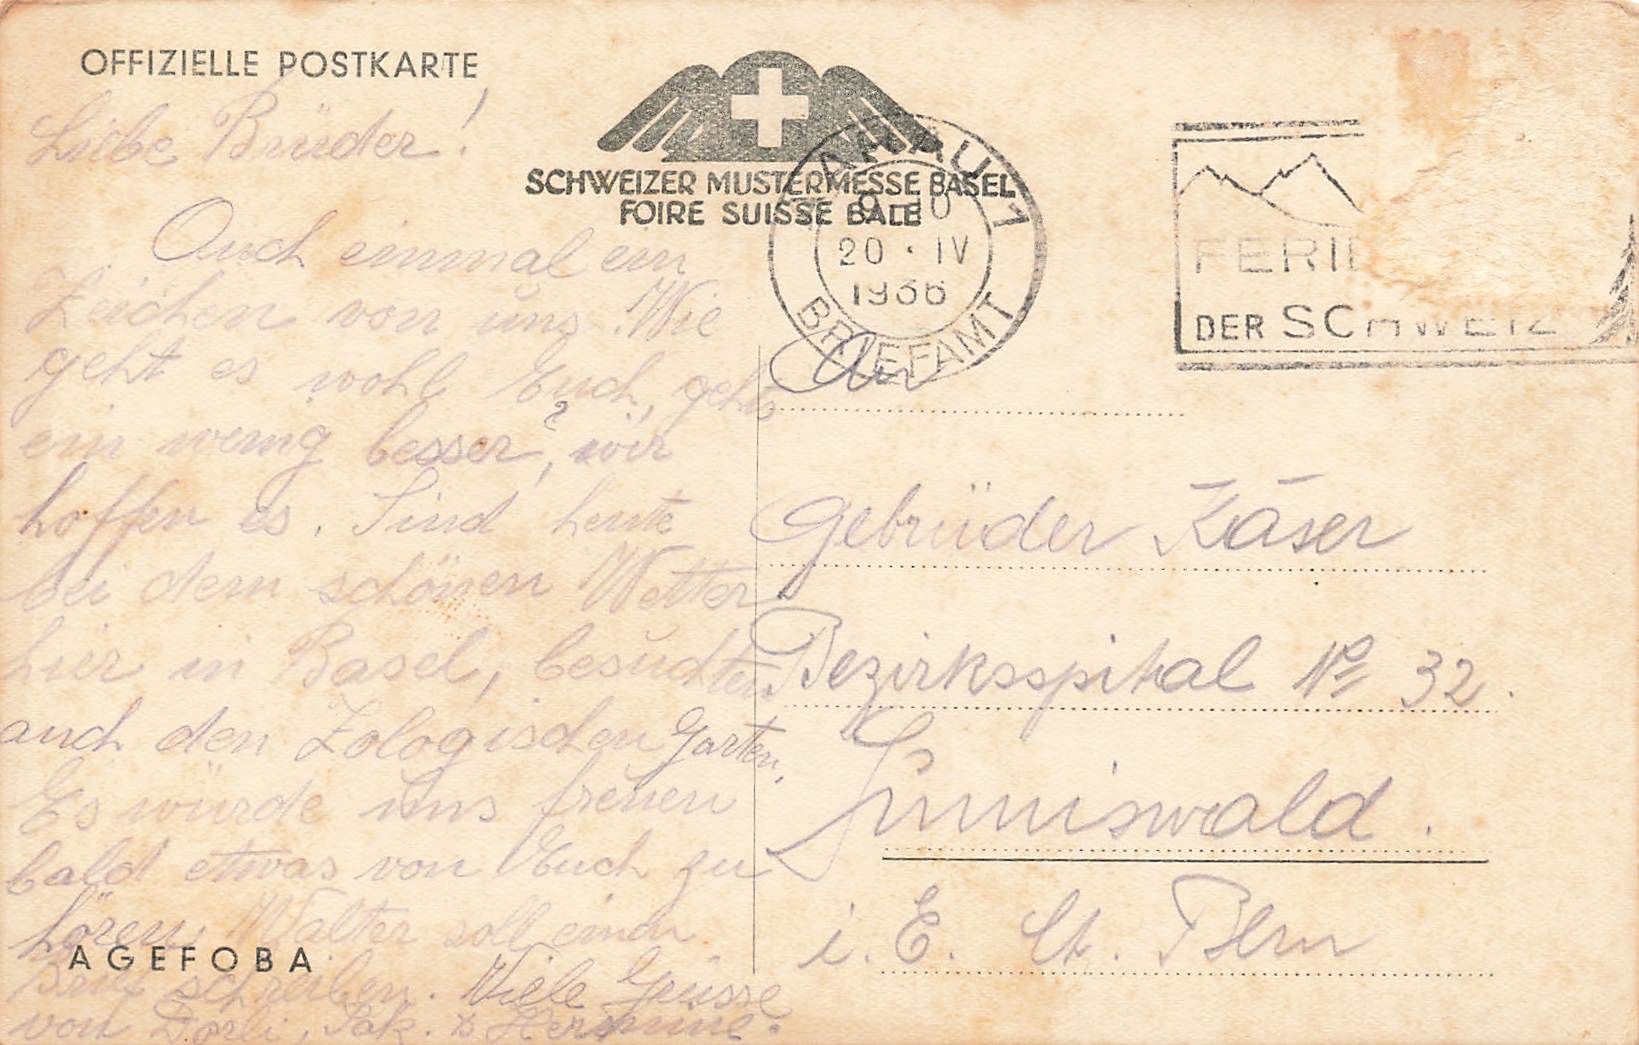 OFFIZIELLE POSTKARTE
SCHWEIZER MUSTERMESSE BASEL
FOIRE SUISSE BALE
AARAU 1
20 · IV
1936
BRIEFAMT
FERIE
DER SCHWEIZ
Liebe Brüder!
Auch einmal ein
Zeichen von uns. Wie
geht es wohl Euch, gehts
ein wenig besser?, wir
hoffen es. Sind heute
bei dem schönen Wetter
hier in Basel, besuchten
auch den Zologischen Garten.
Es würde uns freuen
bald etwas von Euch zu
hören. Walter soll einen
Brief schreiben. Viele Grüsse
von Dorli, Jak. & Hermine.
An
Gebrüder Käser
Bezirksspital No 32.
Sumiswald.
i. E. Ct. Bern
AGEFOBA